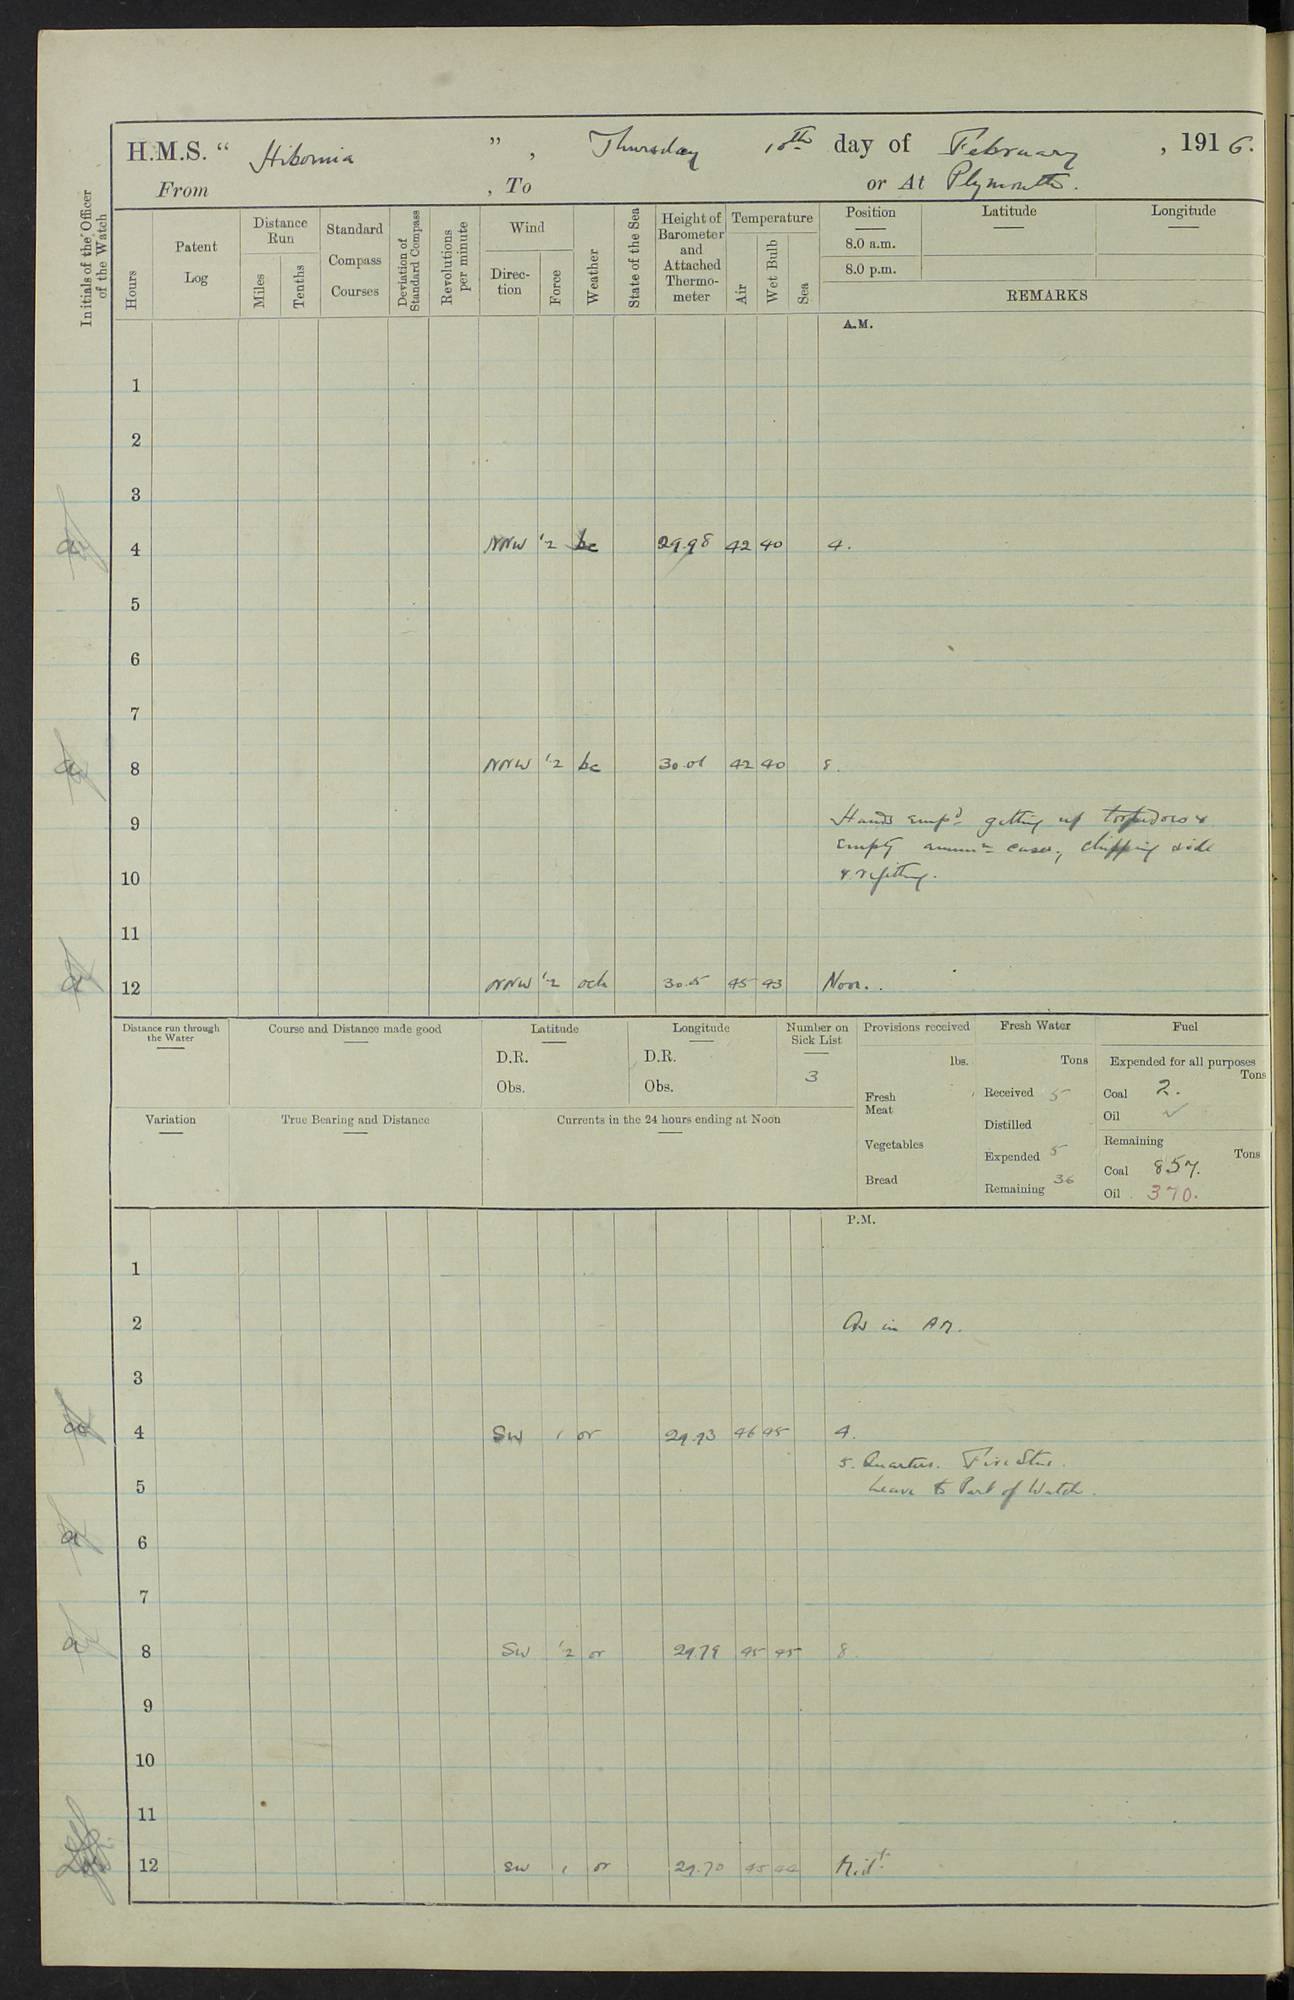 H.M.S. “ Hibernia ” , Thursday 10th day of February , 1916.
From , To or At Plymouth.
Initials of the Officer of the Watch
Hours
Patent Log
Distance Run
Miles
Tenths
Standard Compass Courses
Deviation of Standard Compass
Revolutions per minute
Wind
Direc-tion
Force
Weather
State of the Sea
Height of Barometer and Attached Thermo-meter
Temperature
Air
Wet Bulb
Sea
Position
8.0 a.m.
8.0 p.m.
Latitude
Longitude
REMARKS
A.M.
1
2
3
4 NNW 1.2 bc 29.98 42 40 4.
5
6
7
8 NNW 1.2 bc 30.01 42 40 8.
9 Hands emp'd getting up torpedoes &
empty ammn cases, chipping side
10 & refitting.
11
12 NNW 1.2 och 30.05 45 43 Noon.
Distance run through the Water
Course and Distance made good
Latitude
D.R.
Obs.
Longitude
D.R.
Obs.
Number on Sick List
3
Provisions received
lbs.
Fresh Meat
Vegetables
Bread
Fresh Water
Tons
Received 5
Distilled
Expended 5
Remaining 36
Fuel
Expended for all purposes
Tons
Coal 2.
Oil ✓
Remaining
Tons
Coal 857.
Oil 370.
Variation
True Bearing and Distance
Currents in the 24 hours ending at Noon
P.M.
1
2 As in AM.
3
4 SW 1 or 29.93 46 45 4.
5. Quarters. Fire Stns.
5 Leave to Part of Watch.
6
7
8 SW 1.2 or 29.79 45 45 8.
9
10
11
12 SW 1 or 29.70 45 44 Midt.